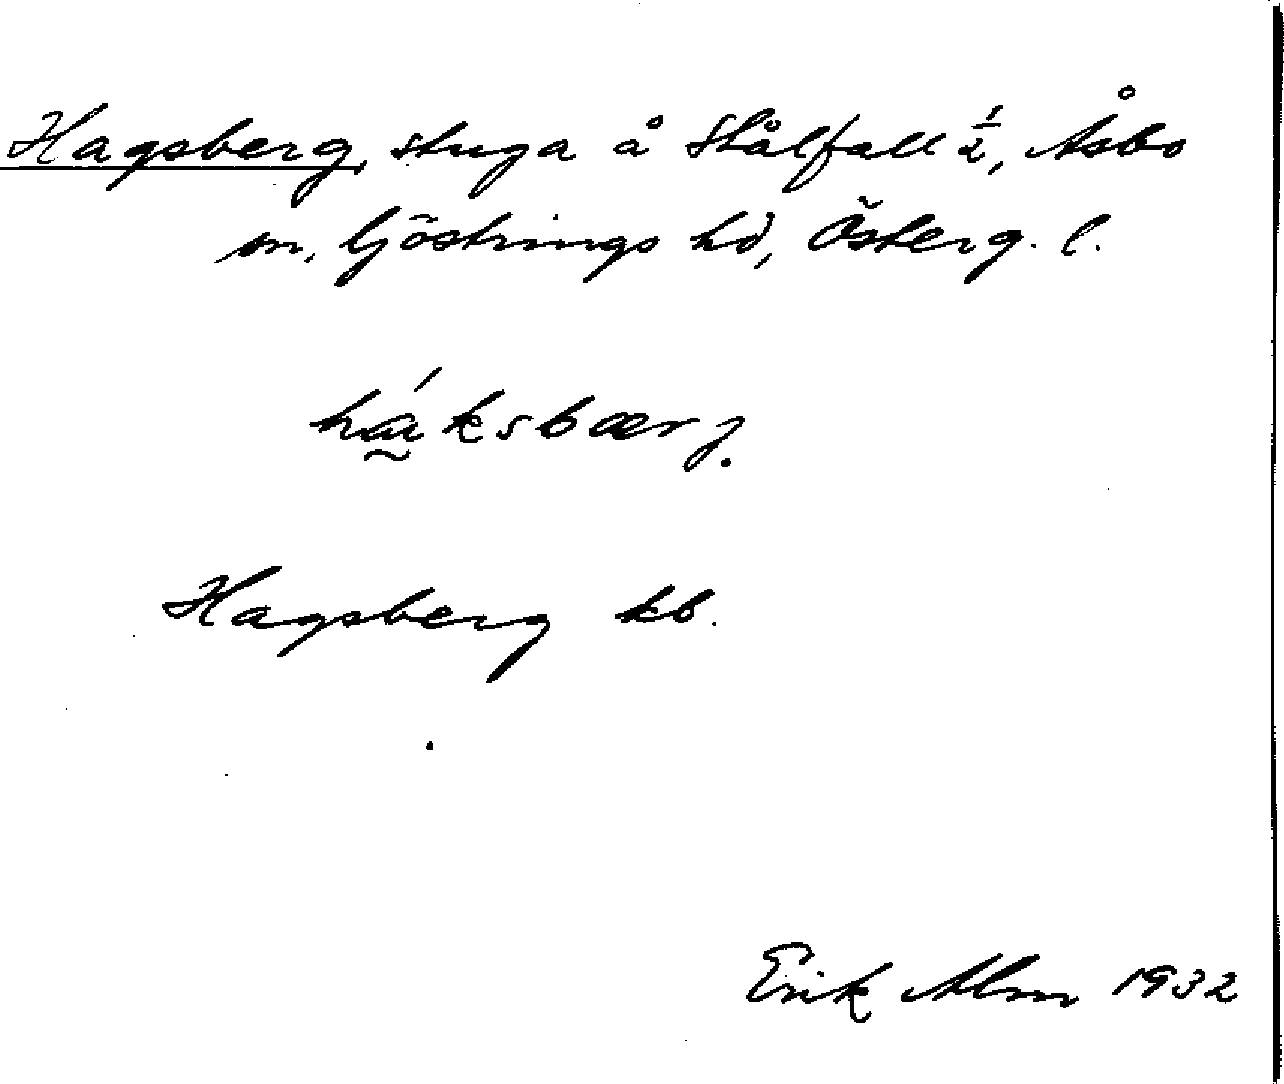 Hagsberg, stuga å Stålfall ½, Åsbo
sn, Göstrings hd, Österg. l.
há̰ksbærj.
Hagsberg kb.
Erik Alm 1932